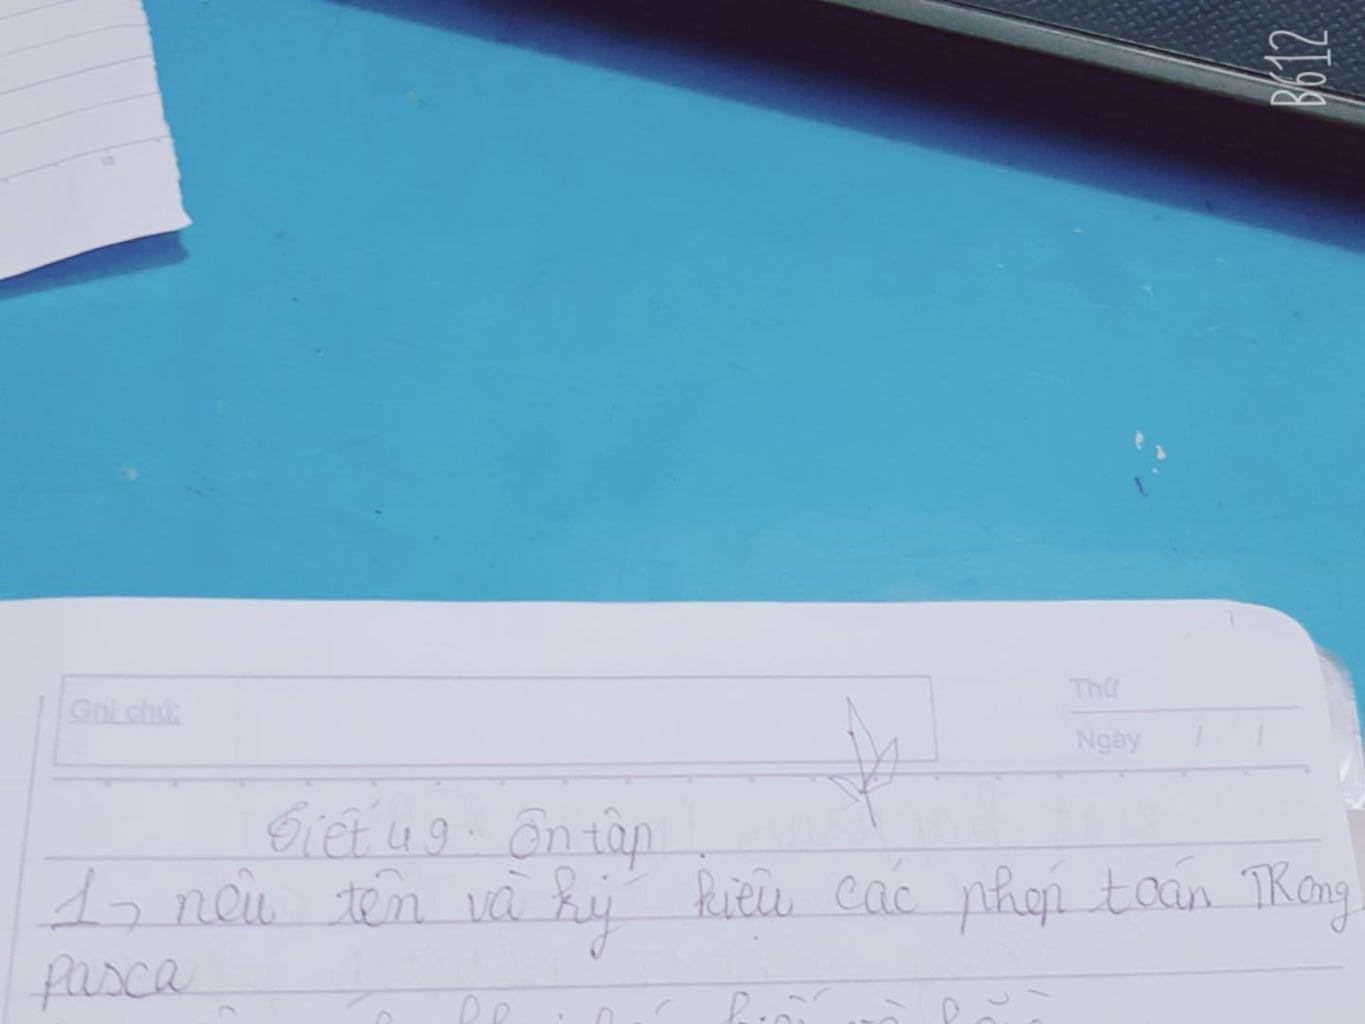 B612
Ghi chú:
Thứ
Ngày / /
Tiết 49. Ôn tập
1, nêu tên và ký hiệu các phép toán TRong
pasca